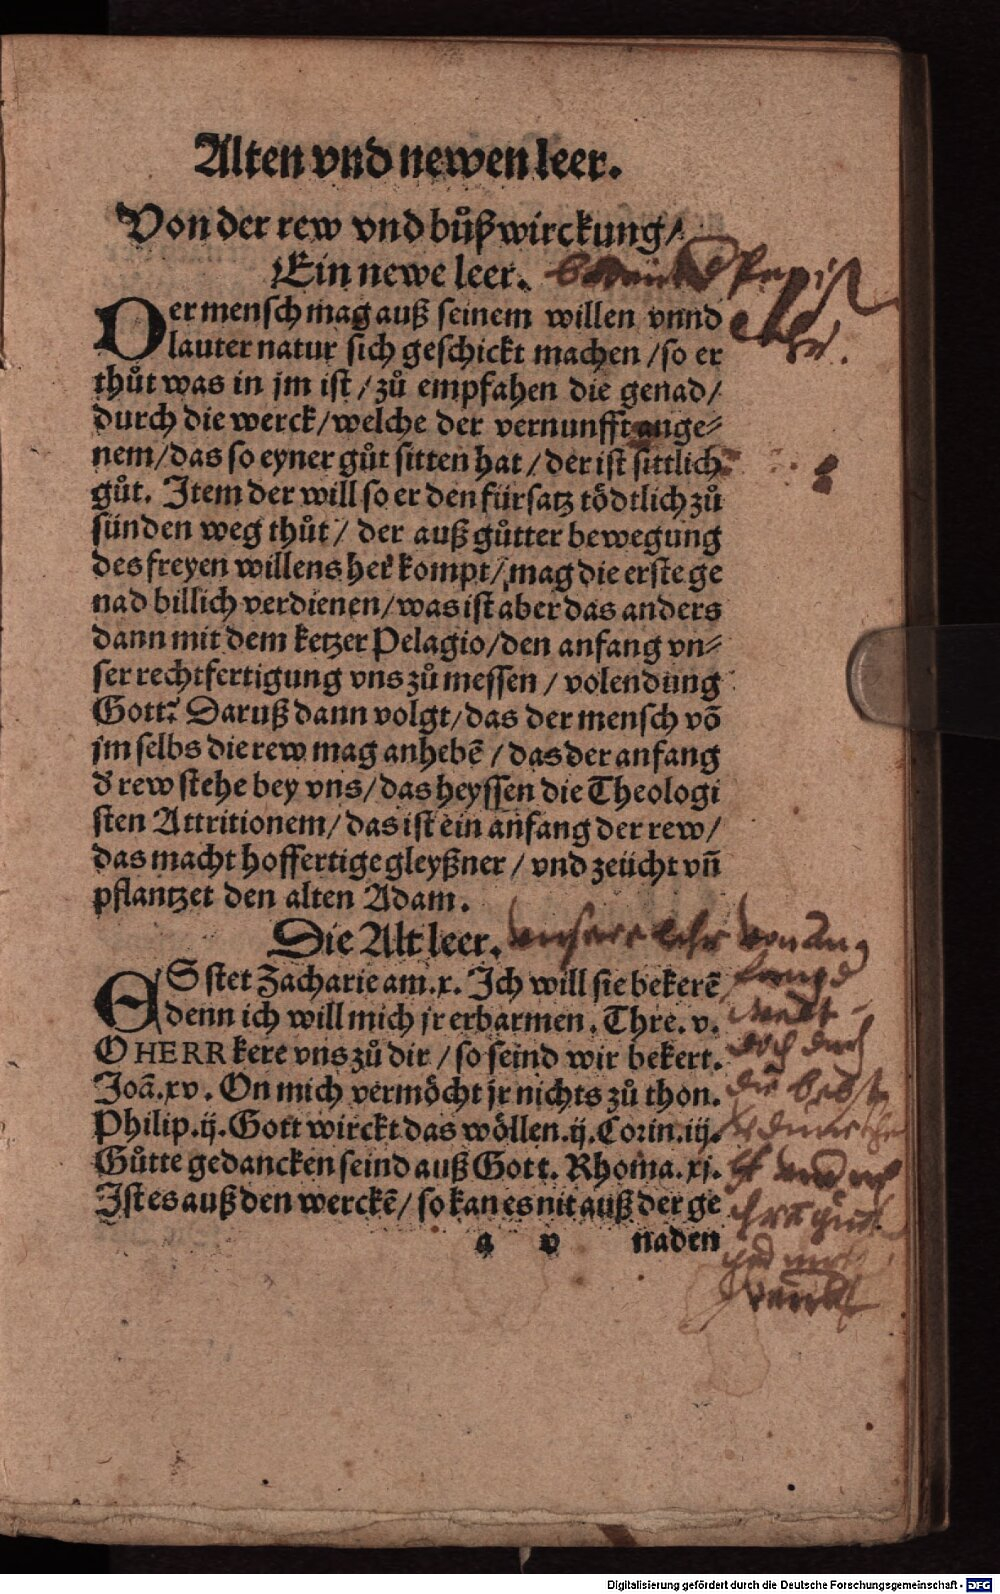 Alten vnd newen leer.
Von der rew vnd bůßwirckung/
Ein newe leer.
DEr mensch mag auß seinem willen vnnd
lauter natur sich geschickt machen/so er
thůt was in jm ist/zů empfahen die genad/
durch die werck/welche der vernunfft ange⸗
nem/das so eyner gůt sitten hat/der ist sittlich
gůt. Item der will so er den fürsatz tödtlich zů
sünden weg thůt/ der auß gůtter bewegung
des freyen willens her kompt/mag die erste ge
nad billich verdienen/was ist aber das anders
dann mit dem ketzer Pelagio/den anfang vn⸗
ser rechtfertigung vns zů messen/volendung
Gott? Daruß dann volgt/das der mensch võ
jm selbs die rew mag anhebẽ/das der anfang
d' rew stehe bey vns/das heyssen die Theologi
sten Attritionem/das ist ein anfang der rew/
das macht hoffertige gleyßner/vnd zeücht vñ
pflantzet den alten Adam.
Die Alt leer. vnsere lehr von An
ES stet Zacharie am.x. Ich will sie bekerẽ
denn ich will mich jr erbarmen. Thre.v.
O HERR kere vns zů dir/so seind wir bekert.
Joã.xv. On mich vermöcht jr nichts zů thon.
Philip.ij. Gott wirckt das wöllen.ij.Corin.iij.
Gůtte gedancken seind auß Gott. Rhoma.xj.
Ist es auß den werckẽ/so kan es nit auß der ge
a v naden
Digitalisierung gefördert durch die Deutsche Forschungsgemeinschaft - DFG